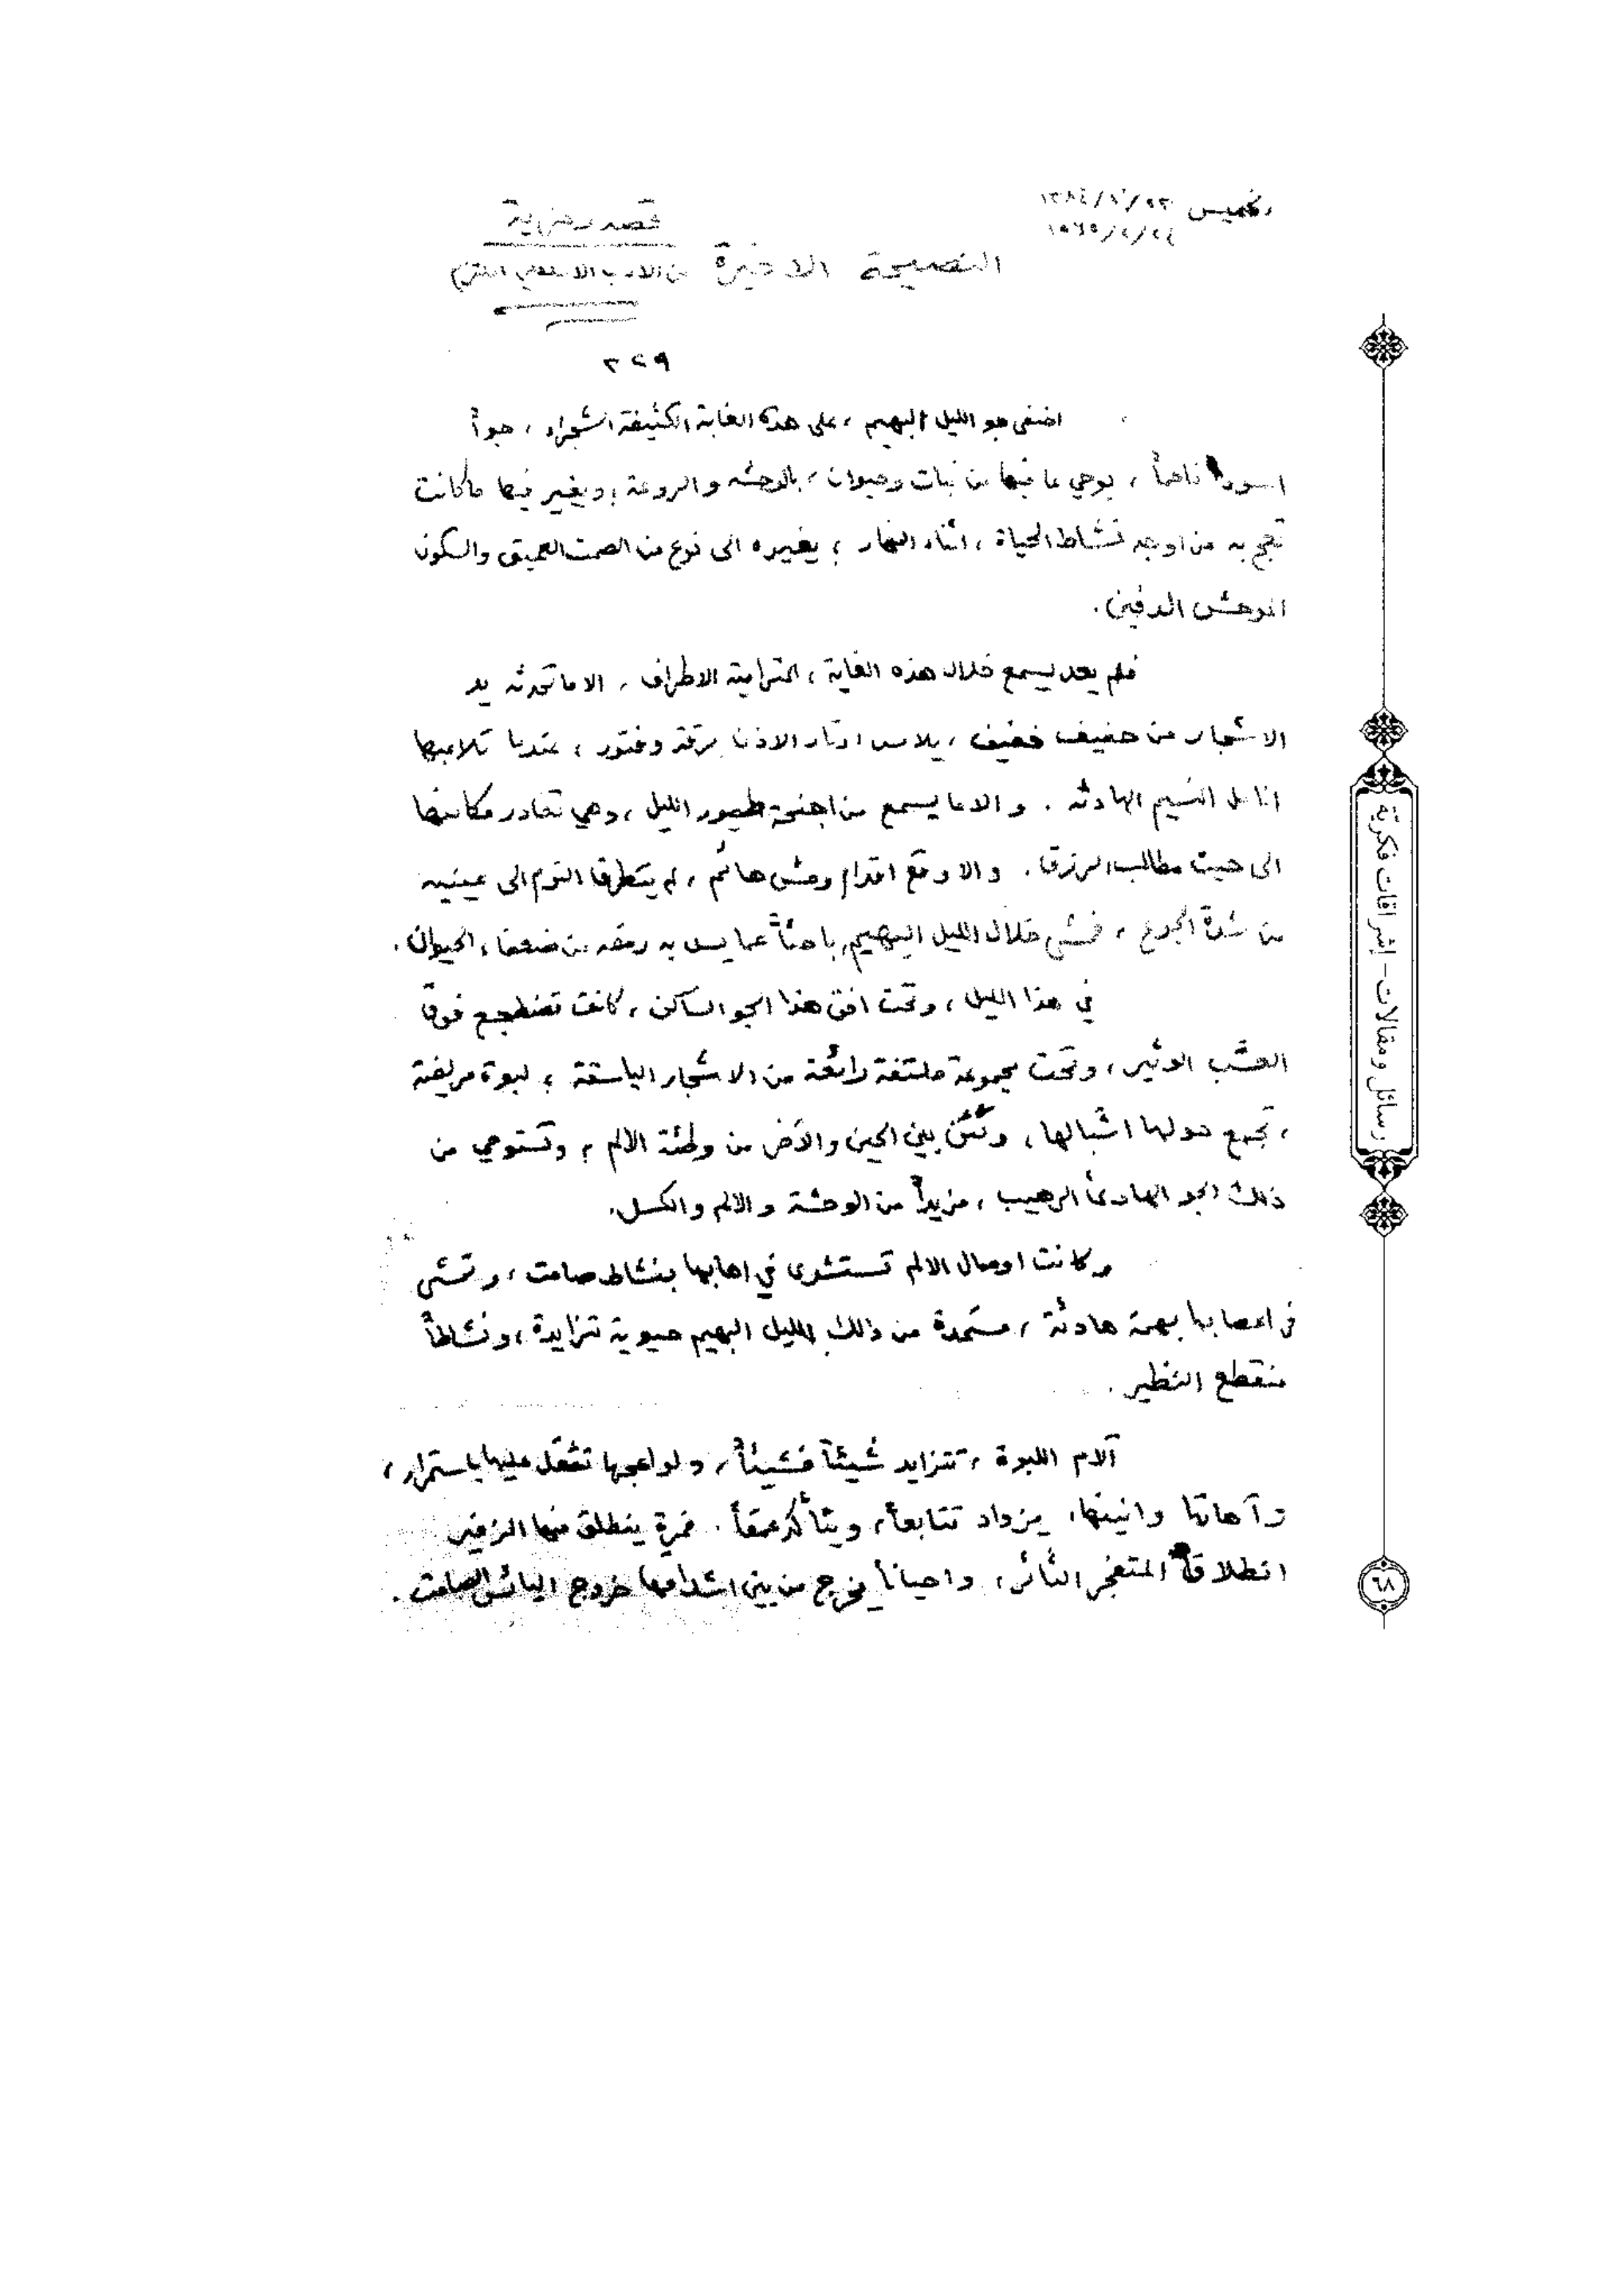 الخميس
قصة رمزية
النصيحة الاخيرة من الادب الاسلامي الملتزم
٣٢٩
اضفى جو الليل البهيم ، على هذه الغابة الكثيفة الشجراء ، جواً
اسوداً ناعماً ، يوحي ما فيها من نبات وحيوان ، بالوحشه والروعة ؛ ويغير فيها ما كانت
تعج به من اوجه نشاط الحياة ، اثناء النهار ؛ يغيره الى نوع من الصمت العميق والسكون
الموحش الدفين .
فلم يعد يسمع خلال هذه الغابة ، المترامية الاطراف ، الا ما تحدثه يد
الاشجار من حفيف خفيف ، يلامس اوتار الاذن برقة وفتور ، عندما تلاعبها
انامل النسيم الهادئه . والا ما يسمع من اجنحة طيور الليل ، وهي تغادر مكامنها
الى حيث مطالب الرزق . والا وقع اقدام وحش هائم ، لم يتطرق النوم الى عينيه
من شدة الجوع ، فمشى خلال الليل البهيم باحثاً عما يسد به رمقه من ضعفاء الحيوان .
في هذا الليل ، وتحت افق هذا الجو الساكن ، كانت تضطجع فوق
العشب الوثير ، وتحت مجموعة ملتفة رائعة من الاشجار الباسقة ؛ لبوة مريضة
، تجمع حولها اشبالها ، وتئن بين الحين والآخر من وطئة الالم ؛ وتستوحي من
ذلك الجو الهادئ الرهيب ، مزيداً من الوحشة والالم والكسل .
وكانت اوصال الالم تستشري في اهابها بنشاط صامت ، وتمشي
في اعصابها بهمة هادئة ، مستمدة من ذلك الليل البهيم حيوية متزايدة ، ونشاطاً
منقطع النظير .
آلام اللبوة ، تتزايد شيئاً فشيئاً ، ولواعجها تثقل عليها باستمرار ،
وآهاتها وانينها ، يزداد تتابعاً ، ويتأكد عمقاً . فمرة ينطلق منها الزفير
انطلاقة المتفجر الثائر ، واحياناً يخرج من بين اشداقها خروج اليائس الصامت .
رسائل ومقالات - إشراقات فكريّة
٦٨